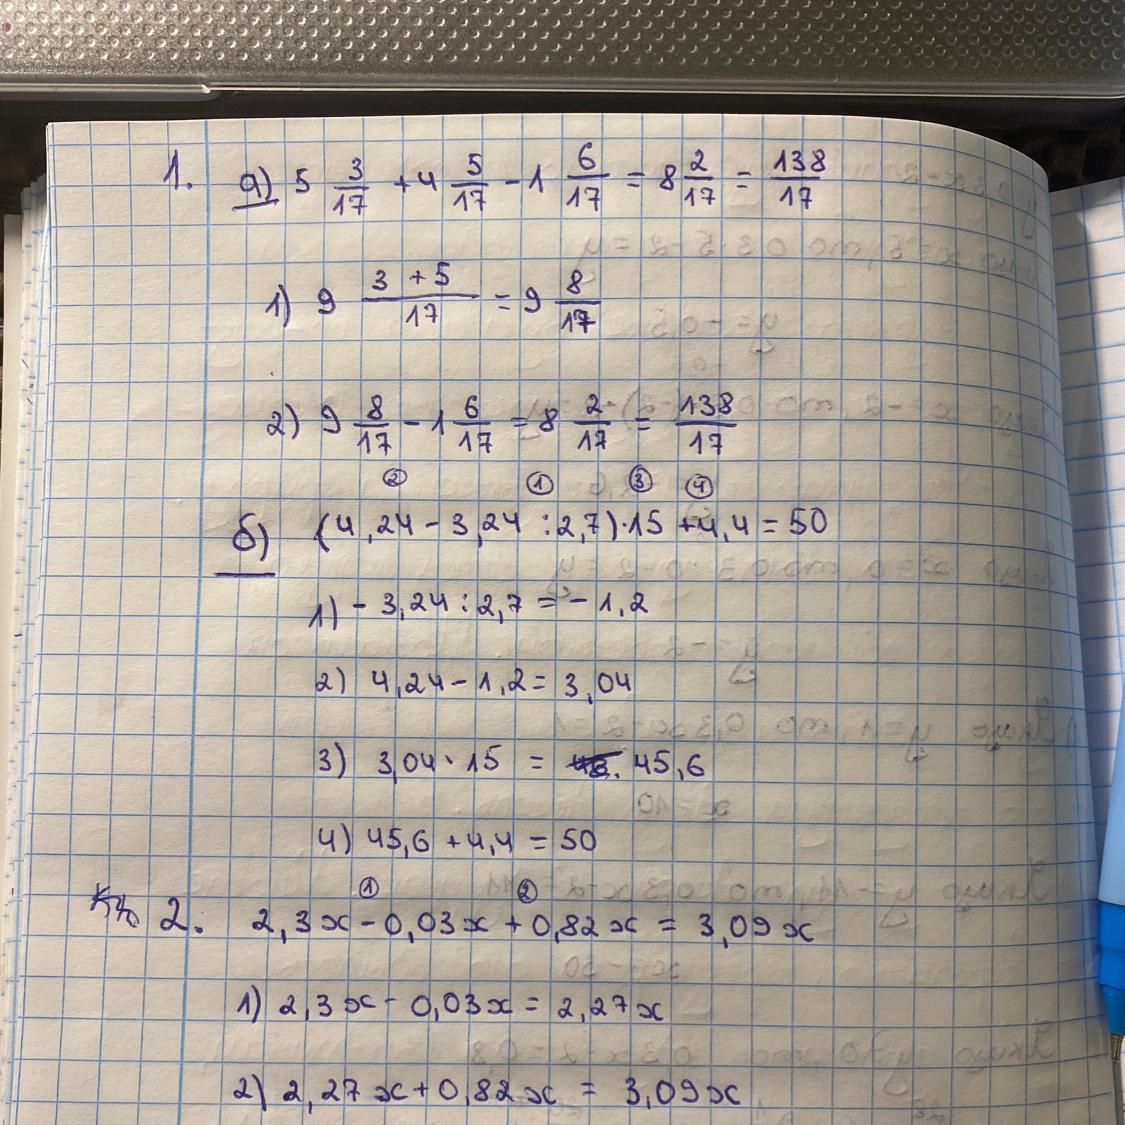 1. а) 5 3/17 + 4 5/17 - 1 6/17 = 8 2/17 = 138/17
1) 9 (3 + 5)/17 = 9 8/17
2) 9 8/17 - 1 6/17 = 8 2/17 = 138/17
② ① ③ ④
б) (4,24 - 3,24 : 2,7) · 15 + 4,4 = 50
1) - 3,24 : 2,7 = - 1,2
2) 4,24 - 1,2 = 3,04
3) 3,04 · 15 = 45,6
4) 45,6 + 4,4 = 50
① ②
2. 2,3x - 0,03x + 0,82x = 3,09x
1) 2,3x - 0,03x = 2,27x
2) 2,27x + 0,82x = 3,09x